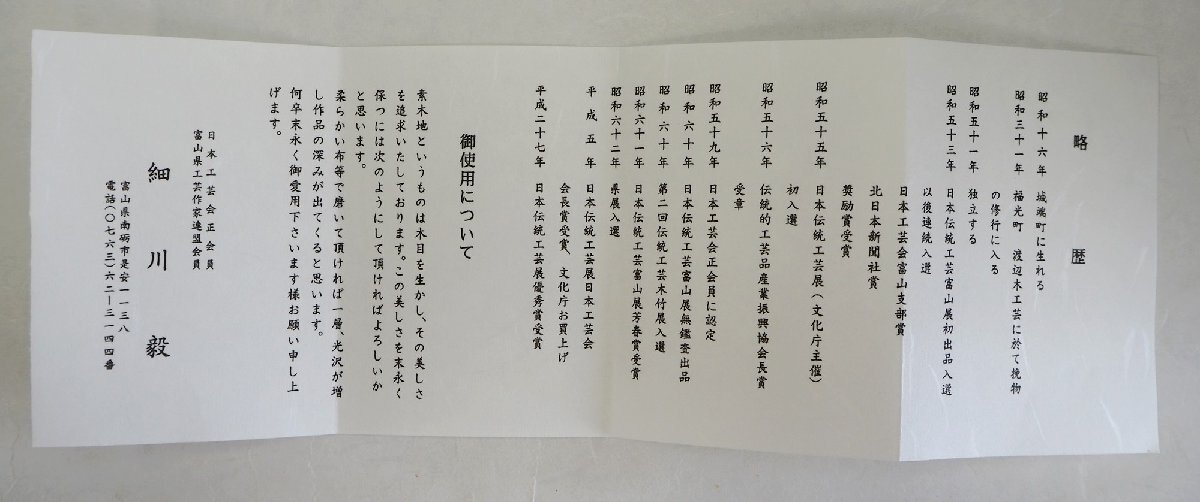 略歴
昭和十六年 城端町に生れる
昭和三十一年 福光町 渡辺木工芸に於て挽物
の修行に入る
昭和五十一年 独立する
昭和五十三年 日本伝統工芸富山展初出品入選
以後連続入選
日本工芸会富山支部賞
北日本新聞社賞
奨励賞受賞
昭和五十五年 日本伝統工芸展(文化庁主催)
初入選
昭和五十六年 伝統的工芸品産業振興協会長賞
受章
昭和五十九年 日本工芸会正会員に認定
昭和六十年 日本伝統工芸富山展無鑑査出品
昭和六十年 第二回伝統工芸木竹展入選
昭和六十一年 日本伝統工芸富山展芳春賞受賞
昭和六十二年 県展入選
平成五年 日本伝統工芸展日本工芸会
会長賞受賞、文化庁お買上げ
平成二十七年 日本伝統工芸展優秀賞受賞
御使用について
素木地というものは木目を生かし、その美しさ
を追求いたしております。この美しさを末永く
保つには次のようにして頂ければよろしいか
と思います。
柔らかい布等で磨いて頂ければ一層、光沢が増
し作品の深みが出てくると思います。
何卒末永く御愛用下さいます様お願い申し上
げます。
日本工芸会正会員
富山県工芸作家連盟会員
細川毅
富山県南砺市是安一一三八
電話(〇七六三)六二ー三一四四番